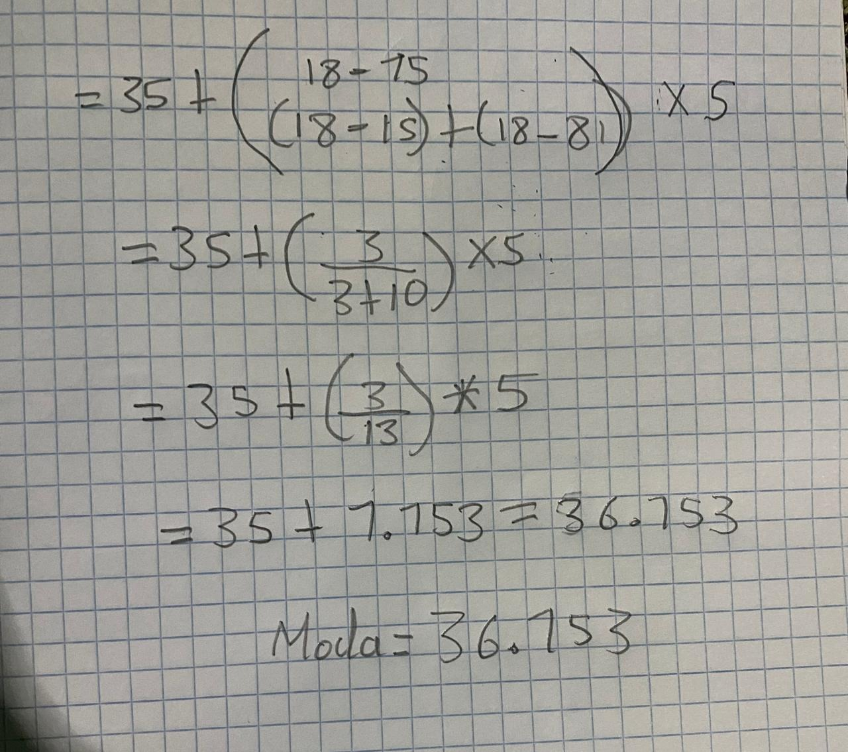 = 35 + ( 18 - 15
(18 - 15) + (18 - 8) ) × 5
= 35 + ( 3 / 3+10 ) × 5
= 35 + ( 3 / 13 ) * 5
= 35 + 1.153 = 36.153
Moda = 36.153